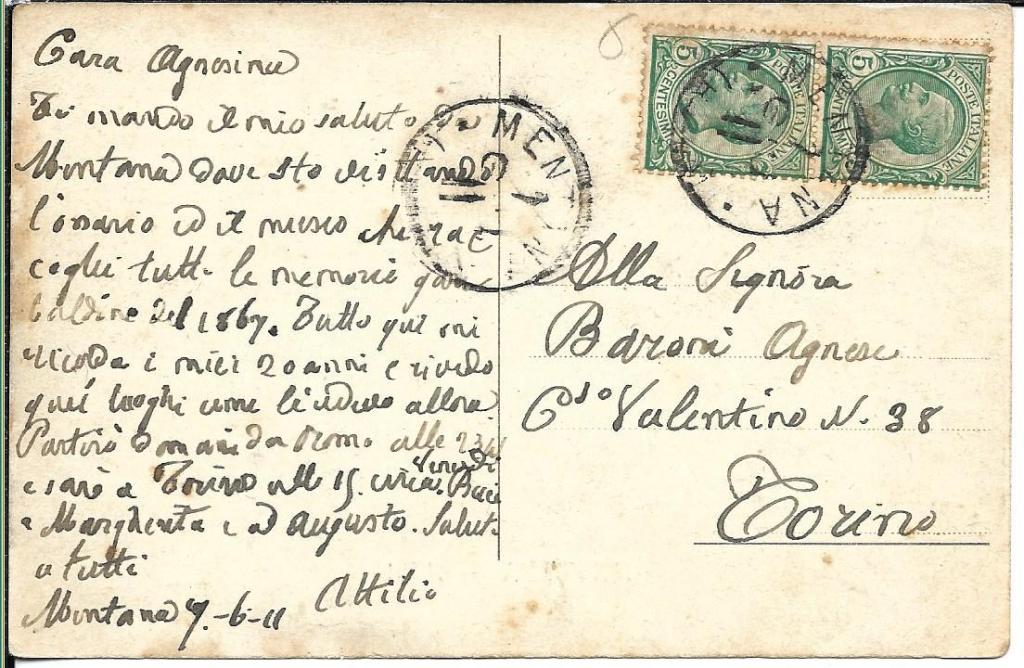 Cara Agnesina
Ti mando il mio saluto da
Mentana dove sto visitando
l'ossario ed il museo che rac
coglie tutte le memorie gari
baldine del 1867. Tutto qui mi
ricorda i miei 20 anni e rivedo
quei luoghi come li vedevo allora.
Partirò domani da Roma alle 23
e sarò a Torino alle 15 circa. Venerdì Baci
a Margherita e ad Augusto. Saluti
a tutti
Attilio
Mentana 7-6-11
MENTANA
7 6 11
POSTE ITALIANE
CENTESIMI 5
POSTE ITALIANE
CENTESIMI 5
MENTANA
Alla Signora
Baroni Agnese
Cso Valentino N. 38
Torino